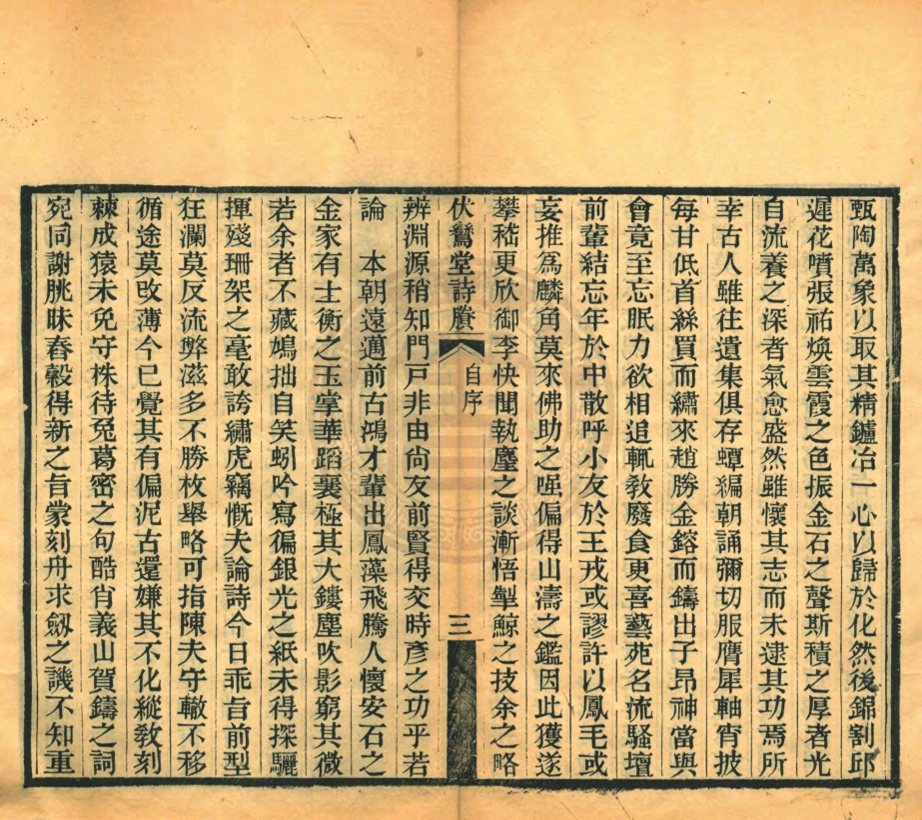 甄陶萬象以取其精鑪冶一心以歸於化然後錦割邱
遲花噴張祐煥雲霞之色振金石之聲斯積之厚者光
自流養之深者氣愈盛然雖懷其志而未逮其功焉所
幸古人雖往遺集俱存蟫編朝誦彌切服膺犀軸宵披
每甘低首絲買而繡來趙勝金鎔而鑄出子昂神當與
會竟至忘眠力欲相追輒教廢食更喜藝苑名流騷壇
前輩結忘年於中散呼小友於王戎或謬許以鳳毛或
妄推爲麟角莫來佛助之嗤偏得山濤之鑑因此獲遂
攀嵇更欣御李快聞執麈之談漸悟掣鯨之技余之略
伏鸞堂詩賸 自序 三
辨淵源稍知門戸非由尙友前賢得交時彥之功乎若
論 本朝遠邁前古鴻才輩出鳳藻飛騰人懷安石之
金家有士衡之玉掌華蹈襄極其大鏤塵吹影窮其微
若余者不藏鳩拙自笑蚓吟寫徧銀光之紙未得探驪
揮殘珊架之毫敢誇繡虎竊慨夫論詩今日乖旨前型
狂瀾莫反流弊滋多不勝枚舉略可指陳夫守轍不移
循途莫改薄今已覺其有偏泥古還嫌其不化縱教刻
棘成猿未免守株待兔葛密之句酷肖義山賀鑄之詞
宛同謝朓昧舂穀得新之旨蒙刻舟求劔之譏不知重